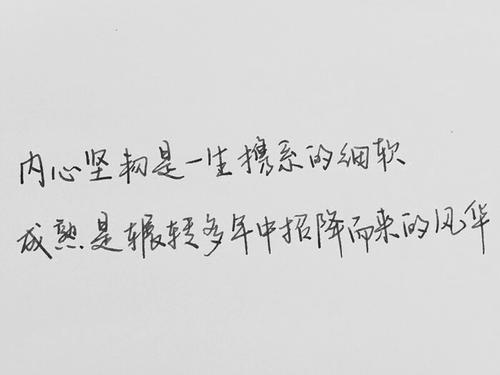 内心坚韧是一生携系的细软
成熟是辗转多年中招降而来的风华